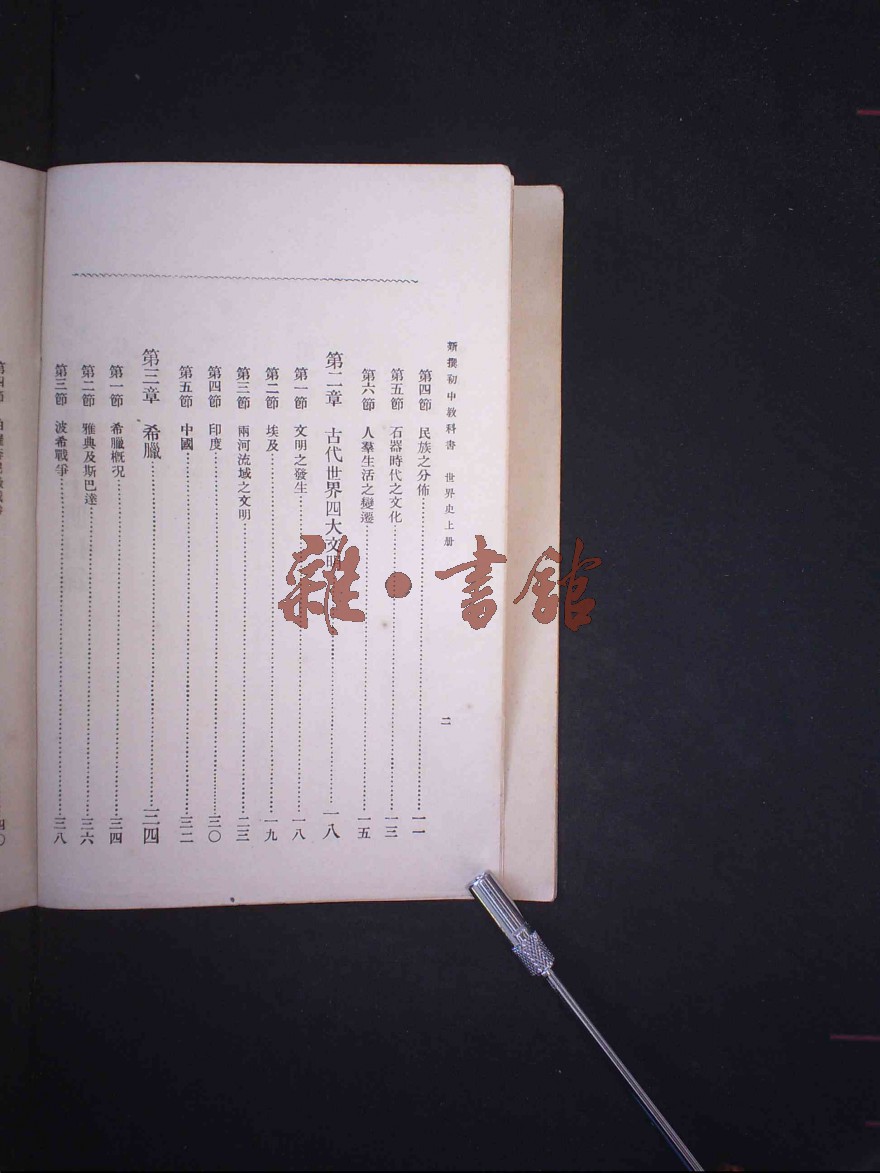 新撰初中敎科書　世界史上册
二
第四節　民族之分佈……一一
第五節　石器時代之文化……一三
第六節　人羣生活之變遷……一五
第二章　古代世界四大文明……一八
第一節　文明之發生……一八
第二節　埃及……一九
第三節　兩河流域之文明……二三
第四節　印度……三〇
第五節　中國……三二
第三章　希臘……三四
第一節　希臘概況……三四
第二節　雅典及斯巴達……三六
第三節　波希戰爭……三八
雜·書館